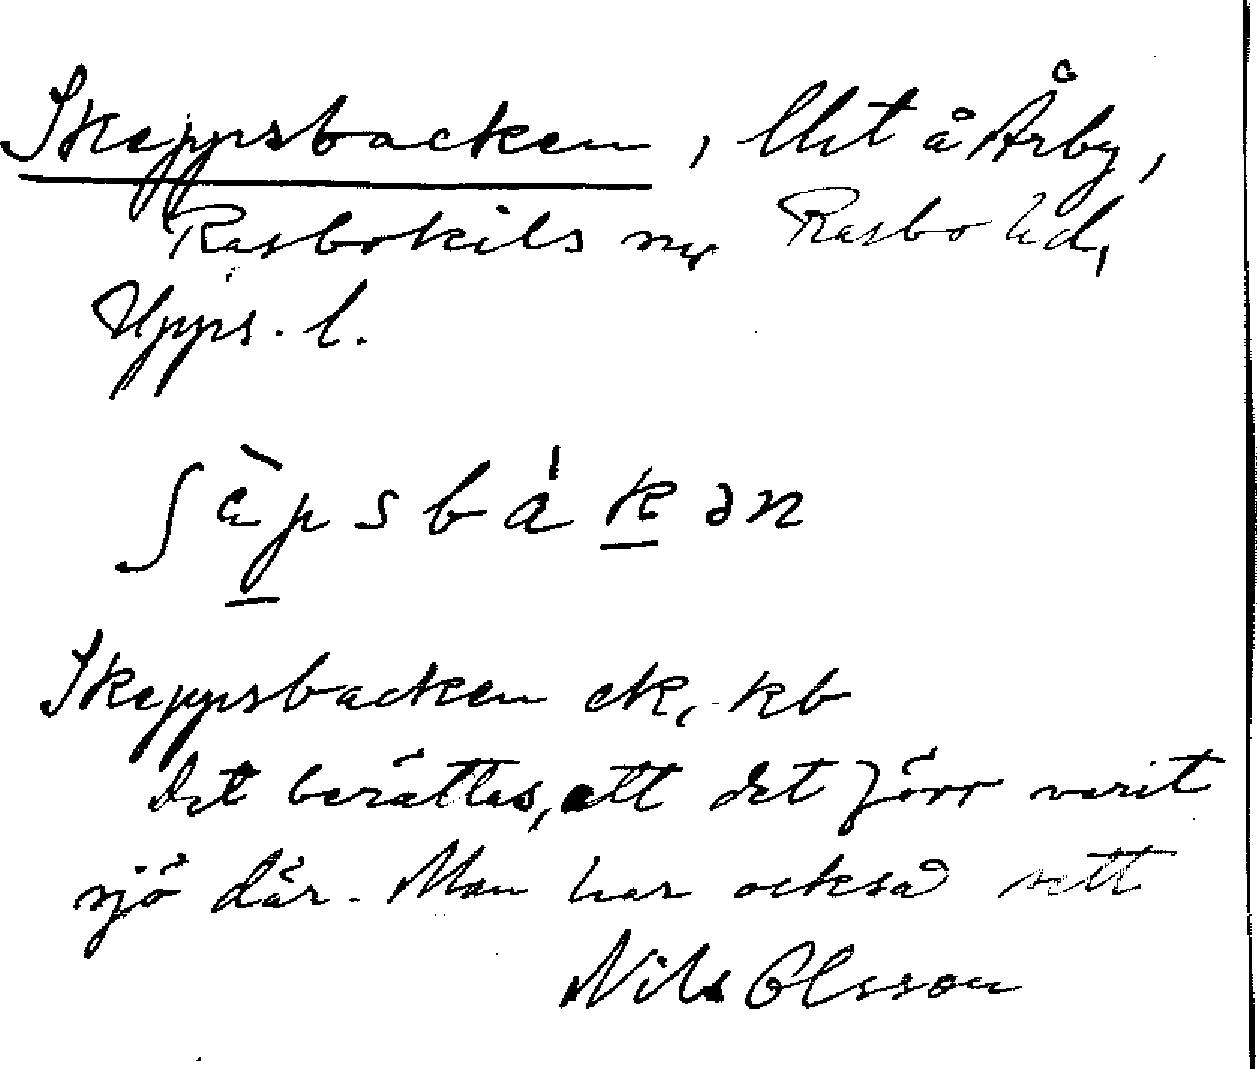 Skeppsbacken, lht å Årby,
Rasbokils sn, Rasbo hd,
Upps. l.
ʃæ̀p̱sbáḵən
Skeppsbacken ek, kb
Det berättas, att det förr varit
sjö där. Man har också sett
Nils Olsson